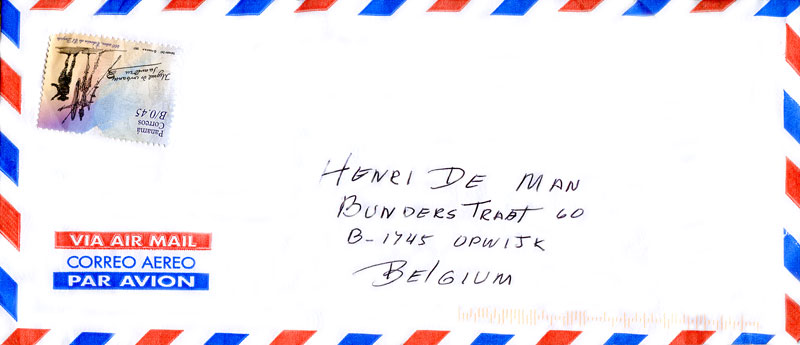 Panamá
Correos
B/0.45
HENRI DE MAN
BUNDERSTRAAT 60
B-1745 OPWIJK
BELGIUM
VIA AIR MAIL
CORREO AEREO
PAR AVION